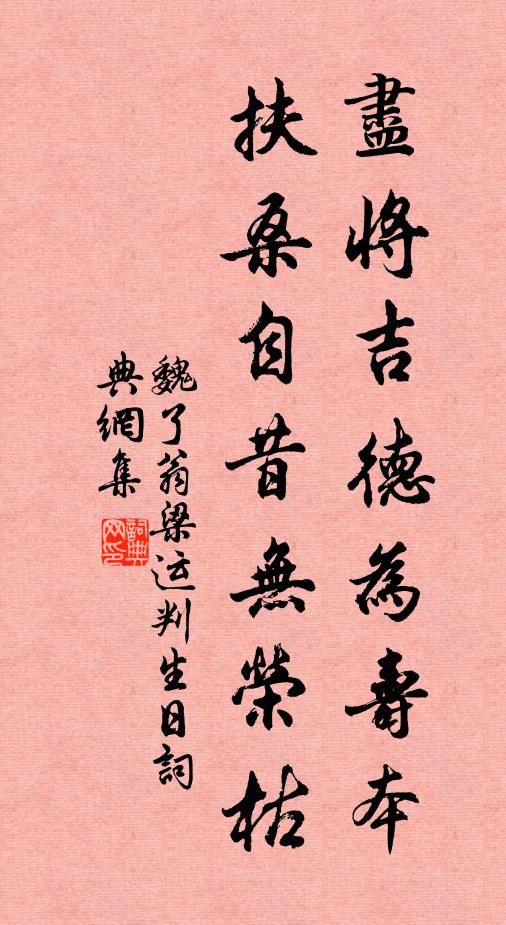 盡將吉德為壽本
扶桑自昔無榮枯
魏了翁梁运判生日詞
典網集
詞典网印